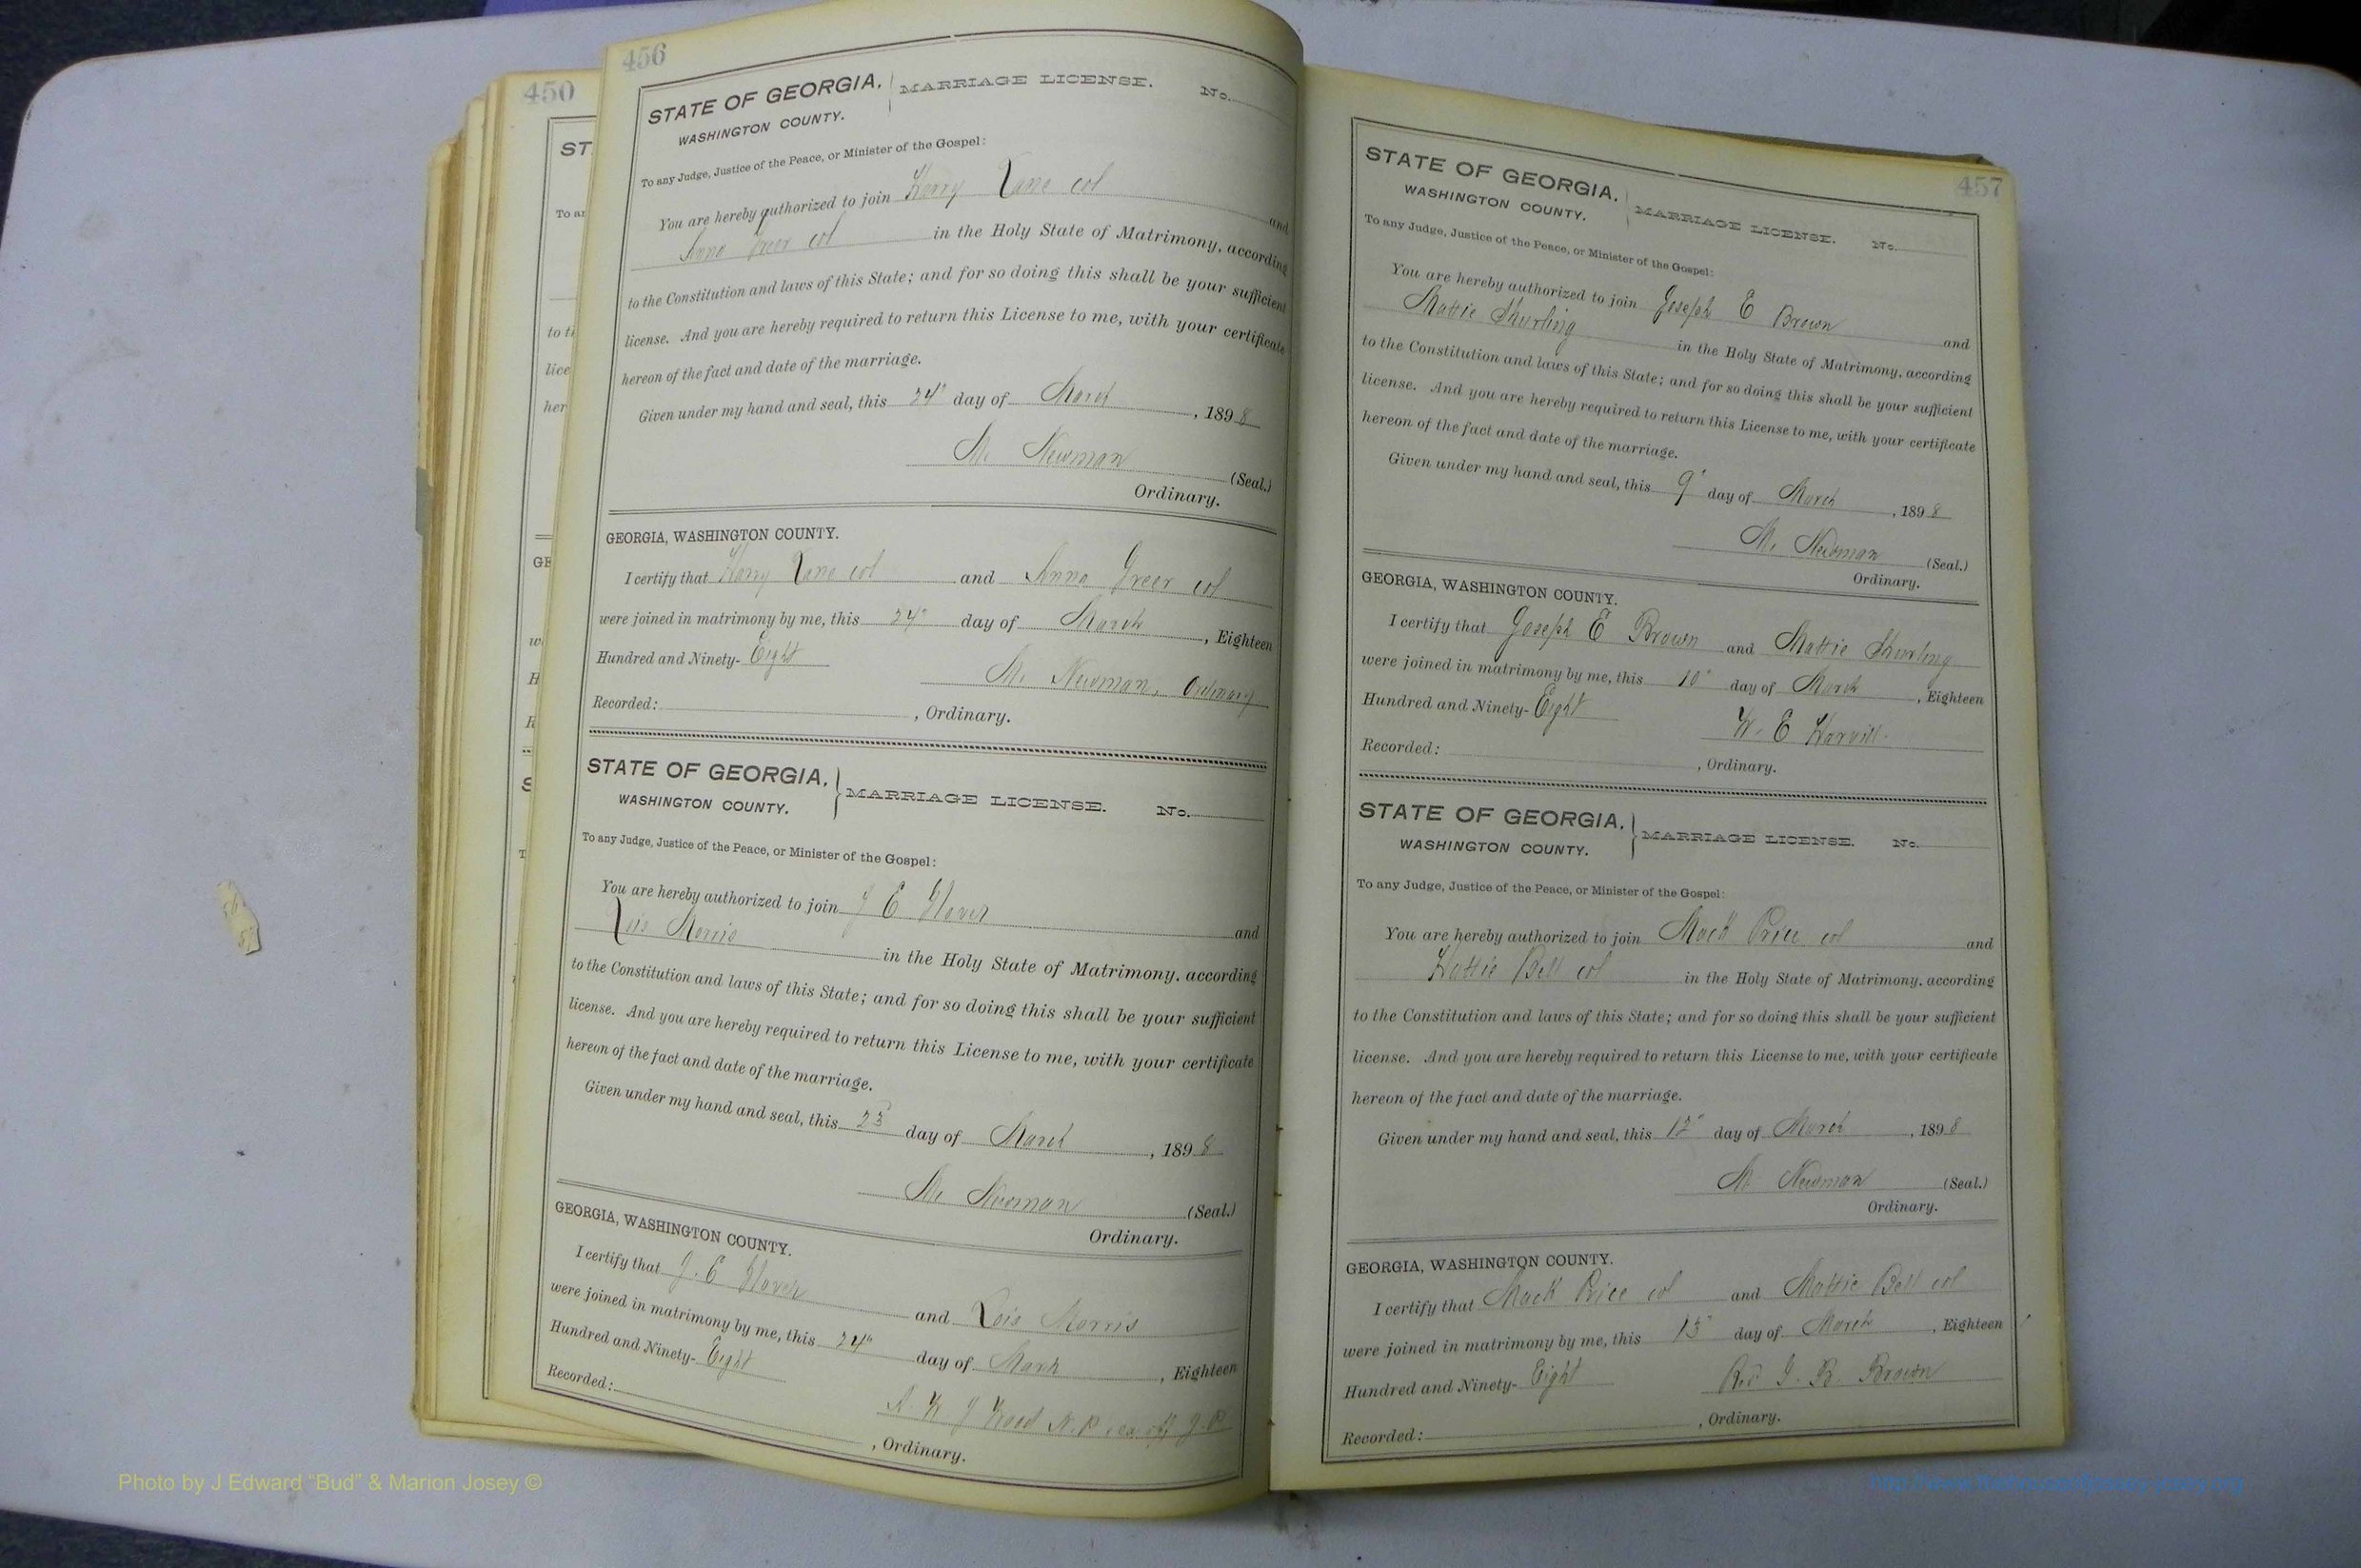 450
ST
To an
to th
lice
her
GE
H
R
456
STATE OF GEORGIA,
WASHINGTON COUNTY.
MARRIAGE LICENSE. No.
To any Judge, Justice of the Peace, or Minister of the Gospel:
You are hereby authorized to join Harry Lane col and
Anna Greer col in the Holy State of Matrimony, according
to the Constitution and laws of this State; and for so doing this shall be your sufficient
license. And you are hereby required to return this License to me, with your certificate
hereon of the fact and date of the marriage.
Given under my hand and seal, this 24" day of March, 1898
M. Newman (Seal.)
Ordinary.
GEORGIA, WASHINGTON COUNTY.
I certify that Harry Lane col and Anna Greer col
were joined in matrimony by me, this 24" day of March, Eighteen
Hundred and Ninety-Eight
M. Newman, Ordinary
Recorded: , Ordinary.
STATE OF GEORGIA,
WASHINGTON COUNTY.
MARRIAGE LICENSE. No.
To any Judge, Justice of the Peace, or Minister of the Gospel:
You are hereby authorized to join J E Glover and
Lois Morris in the Holy State of Matrimony, according
to the Constitution and laws of this State; and for so doing this shall be your sufficient
license. And you are hereby required to return this License to me, with your certificate
hereon of the fact and date of the marriage.
Given under my hand and seal, this 23 day of March, 1898
M. Newman (Seal.)
Ordinary.
GEORGIA, WASHINGTON COUNTY.
I certify that J. E Glover and Lois Morris
were joined in matrimony by me, this 24" day of March, Eighteen
Hundred and Ninety-Eight
Wood N. P. J. P.
Recorded: , Ordinary.
457
STATE OF GEORGIA,
WASHINGTON COUNTY.
MARRIAGE LICENSE. No.
To any Judge, Justice of the Peace, or Minister of the Gospel:
You are hereby authorized to join Joseph E Brown and
Mattie Shurling in the Holy State of Matrimony, according
to the Constitution and laws of this State; and for so doing this shall be your sufficient
license. And you are hereby required to return this License to me, with your certificate
hereon of the fact and date of the marriage.
Given under my hand and seal, this 9" day of March, 1898
M. Newman (Seal.)
Ordinary.
GEORGIA, WASHINGTON COUNTY.
I certify that Joseph E Brown and Mattie Shurling
were joined in matrimony by me, this 10" day of March, Eighteen
Hundred and Ninety-Eight
W. E Harvill
Recorded: , Ordinary.
STATE OF GEORGIA,
WASHINGTON COUNTY.
MARRIAGE LICENSE. No.
To any Judge, Justice of the Peace, or Minister of the Gospel:
You are hereby authorized to join Mack Price col and
Hattie Bell col in the Holy State of Matrimony, according
to the Constitution and laws of this State; and for so doing this shall be your sufficient
license. And you are hereby required to return this License to me, with your certificate
hereon of the fact and date of the marriage.
Given under my hand and seal, this 12" day of March, 1898
M Newman (Seal.)
Ordinary.
GEORGIA, WASHINGTON COUNTY.
I certify that Mack Price col and Mattie Bell col
were joined in matrimony by me, this 13" day of March, Eighteen
Hundred and Ninety-Eight
Rev J. R. Brown
Recorded: , Ordinary.
Photo by J Edward “Bud” & Marion Josey ©